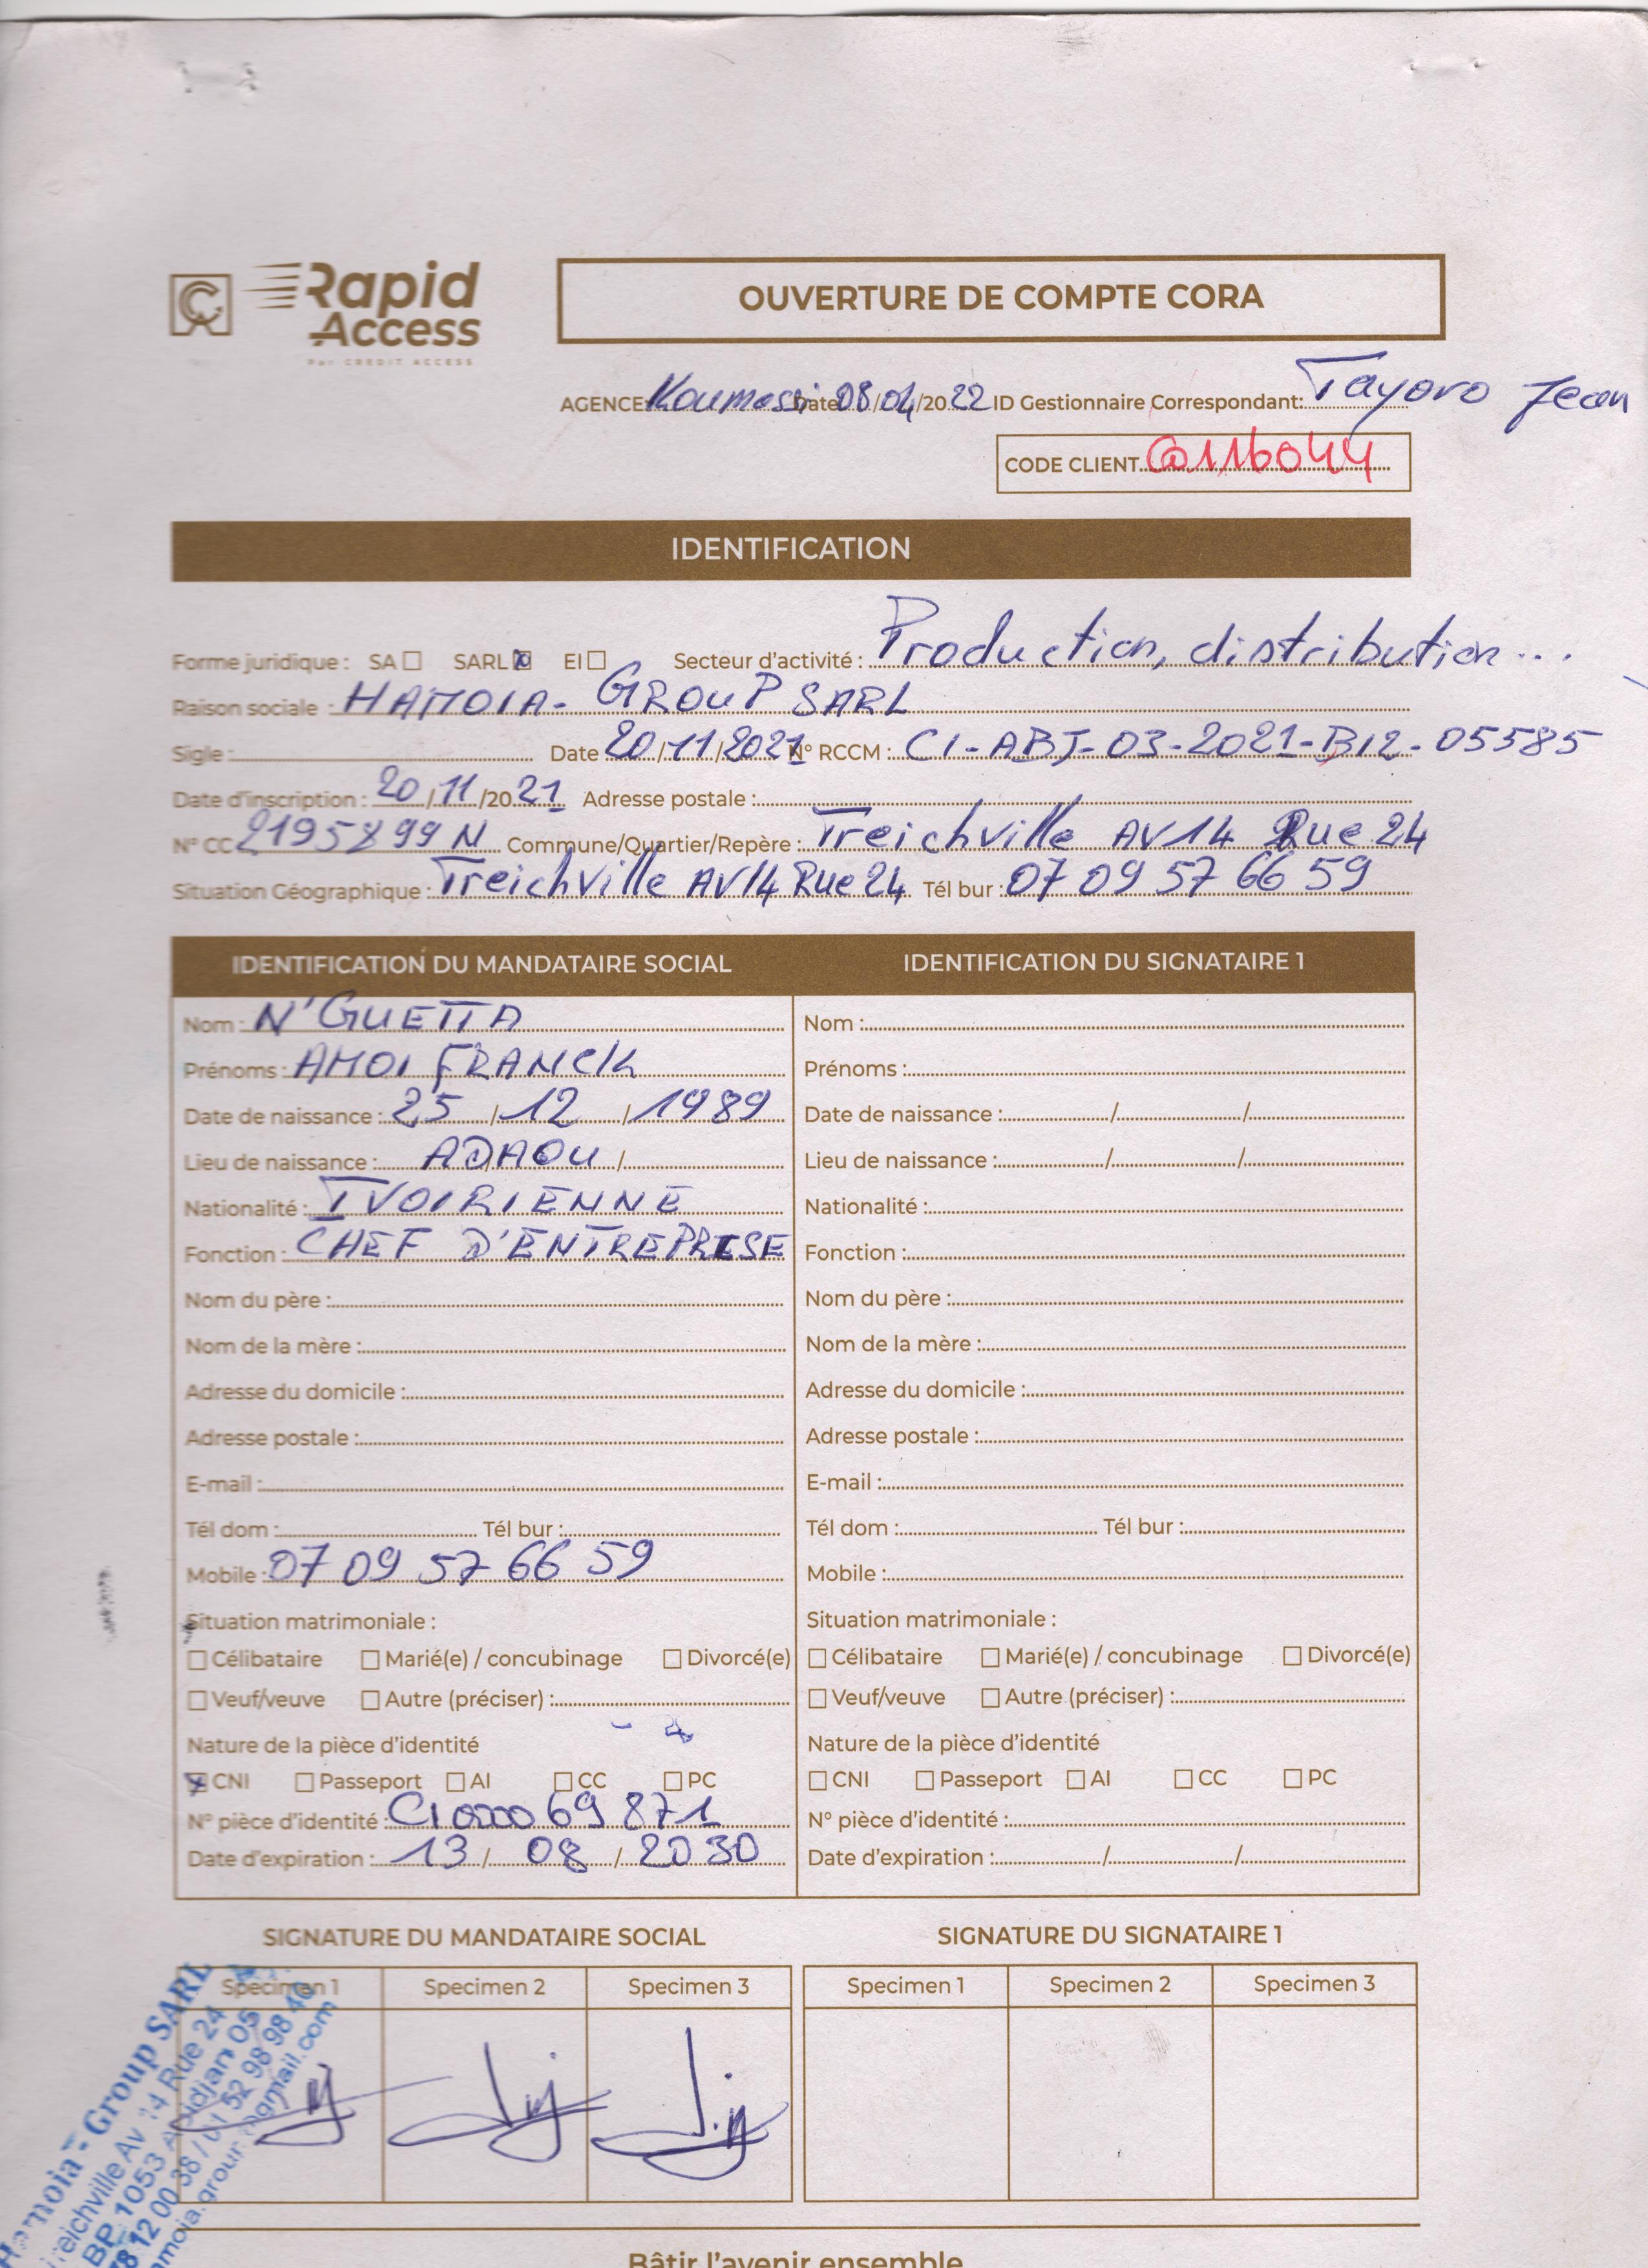 Rapid
Access
Par CREDIT ACCESS
OUVERTURE DE COMPTE CORA
AGENCE: Koumassi Date 08/04/2022 ID Gestionnaire Correspondant: Tayoro Jean
CODE CLIENT @116044
IDENTIFICATION
Forme juridique : SA SARL EI Secteur d'activité : Production, distribution...
Raison sociale : HAMOIA- GROUP SARL
Sigle : Date 20/11/2021 N° RCCM : CI-ABJ-03-2021-B12-05585
Date d'inscription : 20/11/2021 Adresse postale :
N° CC 2195899 N Commune/Quartier/Repère : Treichville AV14 Rue 24
Situation Géographique : Treichville AV14 Rue 24 Tél bur : 07 09 57 66 59
IDENTIFICATION DU MANDATAIRE SOCIAL
Nom : N'GUETTA
Prénoms : AMOI FRANCK
Date de naissance : 25 / 12 / 1989
Lieu de naissance : ADAOU /
Nationalité : IVOIRIENNE
Fonction : CHEF D'ENTREPRISE
Nom du père :
Nom de la mère :
Adresse du domicile :
Adresse postale :
E-mail :
Tél dom : Tél bur :
Mobile : 07 09 57 66 59
Situation matrimoniale :
Célibataire Marié(e) / concubinage Divorcé(e)
Veuf/veuve Autre (préciser) :
Nature de la pièce d'identité
CNI Passeport AI CC PC
N° pièce d'identité : CI000069871
Date d'expiration : 13 / 08 / 2030
IDENTIFICATION DU SIGNATAIRE 1
Nom :
Prénoms :
Date de naissance : / /
Lieu de naissance : / /
Nationalité :
Fonction :
Nom du père :
Nom de la mère :
Adresse du domicile :
Adresse postale :
E-mail :
Tél dom : Tél bur :
Mobile :
Situation matrimoniale :
Célibataire Marié(e) / concubinage Divorcé(e)
Veuf/veuve Autre (préciser) :
Nature de la pièce d'identité
CNI Passeport AI CC PC
N° pièce d'identité :
Date d'expiration : / /
SIGNATURE DU MANDATAIRE SOCIAL
Specimen 1 Specimen 2 Specimen 3
SIGNATURE DU SIGNATAIRE 1
Specimen 1 Specimen 2 Specimen 3
Hamoia - Group SARL
Treichville Av 14 Rue 24
BP 1053 Abidjan 05
78 12 00 38 / 01 52 98 98 40
Bâtir l'avenir ensemble